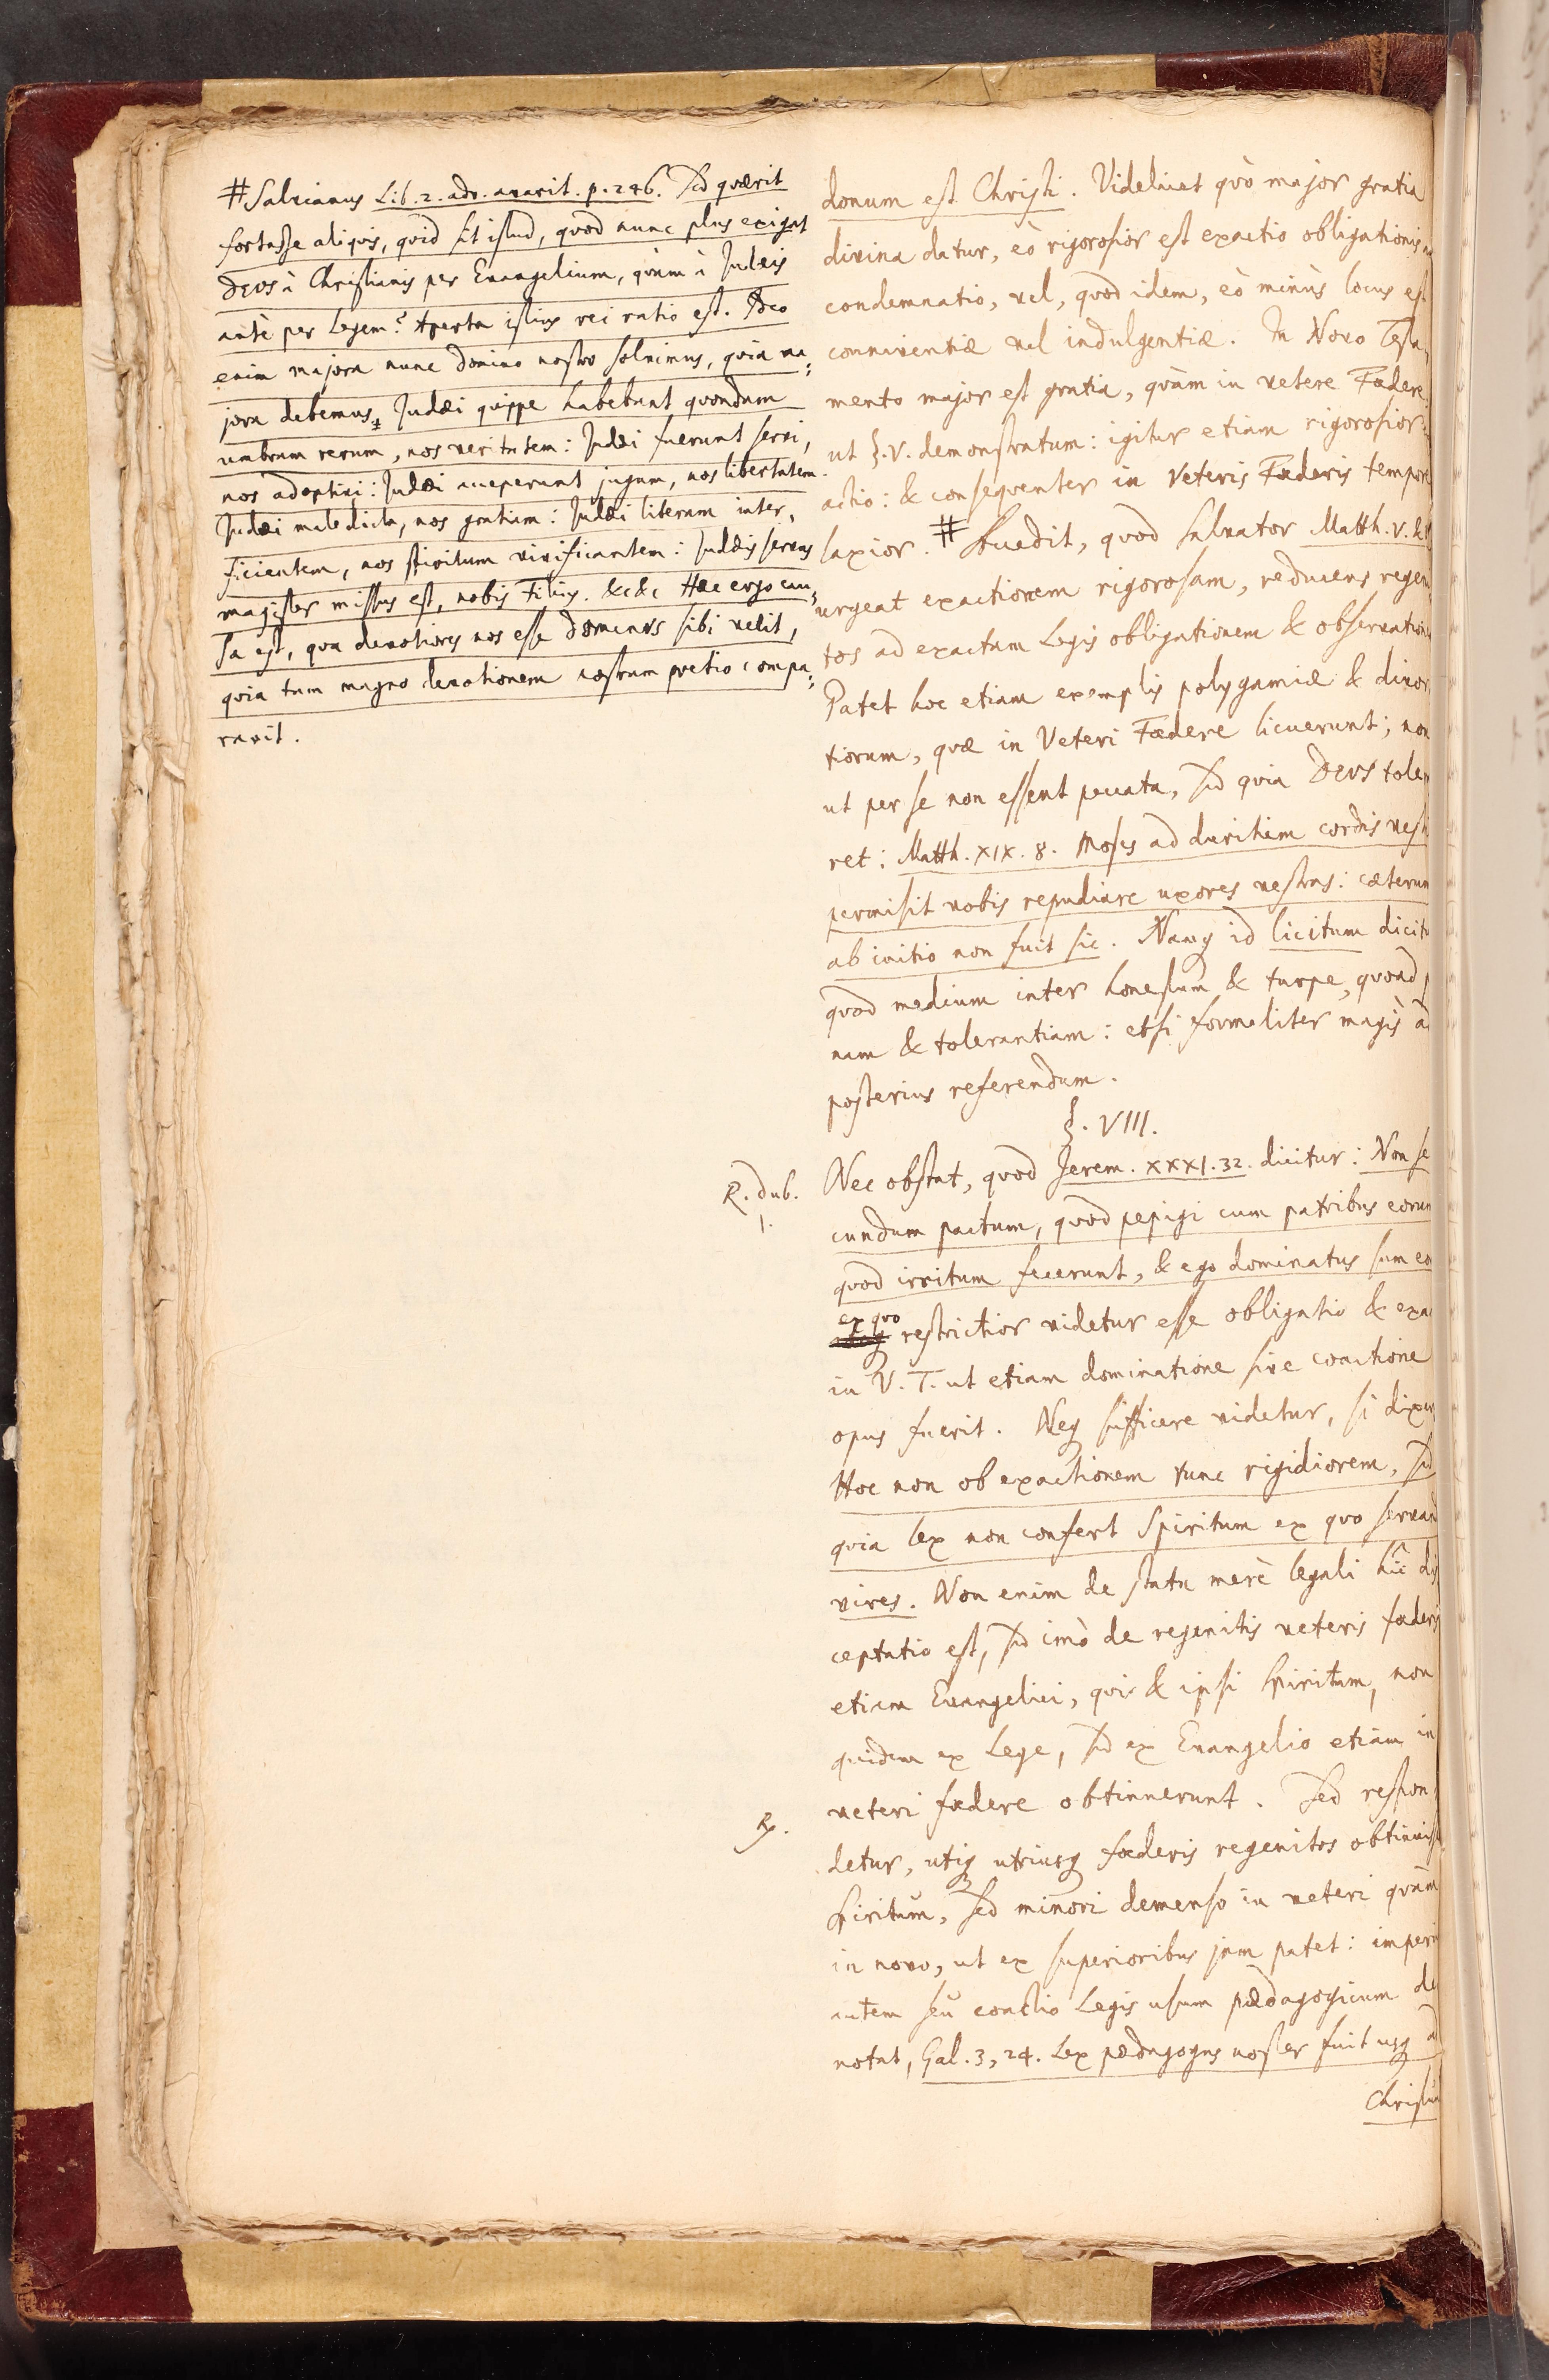 # Salvianus Lib. 2. adv. avarit. p. 246. Sed quærit
fortasse aliquis, quid sit istud, quod nunc plus exigat
DEUS à Christianis per Evangelium, quàm à Judæis
antè per Legem? Aperta istius rei ratio est. Ideo
enim majora nunc Domino nostro solvimus, quia ma-
jora debemus. Judæi quippe habebant quondam
umbram rerum, nos veritatem: Judæi fuerunt servi,
nos adoptivi: Judæi acceperunt jugum, nos libertatem
Judæi maledicta, nos gratiam: Judæi literam inter-
ficientem, nos spiritum vivificantem: Judæis servus
magister missus est, nobis Filius. &c &c Hæc ergo cau-
sa est, qua devotiores nos esse Dominus sibi velit,
quia tam magno devotionem nostram pretio compa-
ravit.
donum est Christi. Videlicet quò major gratia
divina datur, eò rigorosior est exactio obligationis
condemnatio, vel, quod idem, eò minùs locus est
conniventiæ vel indulgentiæ. In Novo Testa-
mento major est gratia, quàm in vetere Fœdere,
ut §. V. demonstratum: igitur etiam rigorosior
actio: & consequenter in Veteris Fœderis tempore
laxior. # Suadit, quod Salvator Matth. V. &
urgeat exactionem rigorosam, reducens regeni
tos ad exactam Legis obligationem & observation
Patet hoc etiam exemplis polygamiæ & divor
tiorum, quæ in Veteri Fœdere licuerunt; non
ut per se non essent peccata, sed quia DEUS tole
ret: Matth. XIX. 8. Moses ad duritiem cordis vest
permisit vobis repudiare uxores vestras: cæterum
ab initio non fuit sic. Namq id licitum dicit
quod medium inter honestum & turpe, quoad
nam & tolerantiam: etsi formaliter magìs ad
posterius referendum.
§. VIII.
R. dub.
1.
Nec obstat, quod Jerem. XXXI. 32. dicitur: Non se
cundum pactum, quod pepigi cum patribus eorum
quod irritum fecerunt, & ego dominatus sum eo
ex quo
restrictior videtur esse obligatio & exa
in V. T. ut etiam dominatione sive coactione
opus fuerit. Neq sufficere videtur, si dixer
Hoc non ob exactionem tunc rigidiorem, sed
quia lex non confert Spiritum ex quo servand
vires. Non enim de statu merè legali hîc di
ceptatio est, sed imò de regenitis veteris fœderis
etiam Evangelici, qui & ipsi Spiritum, non
quidem ex Lege, sed ex Evangelio etiam in
veteri fœdere obtinuerunt. Sed respon
R.
detur, utiq utriusq fœderis regenitos obtinuiss
Spiritum, sed minori demenso in veteri quàm
in novo, ut ex superioribus jam patet: imperi
autem seu coactio Legis usum pædagogicum de
notat, Gal. 3, 24. Lex pædagogus noster fuit usq ad
Christum